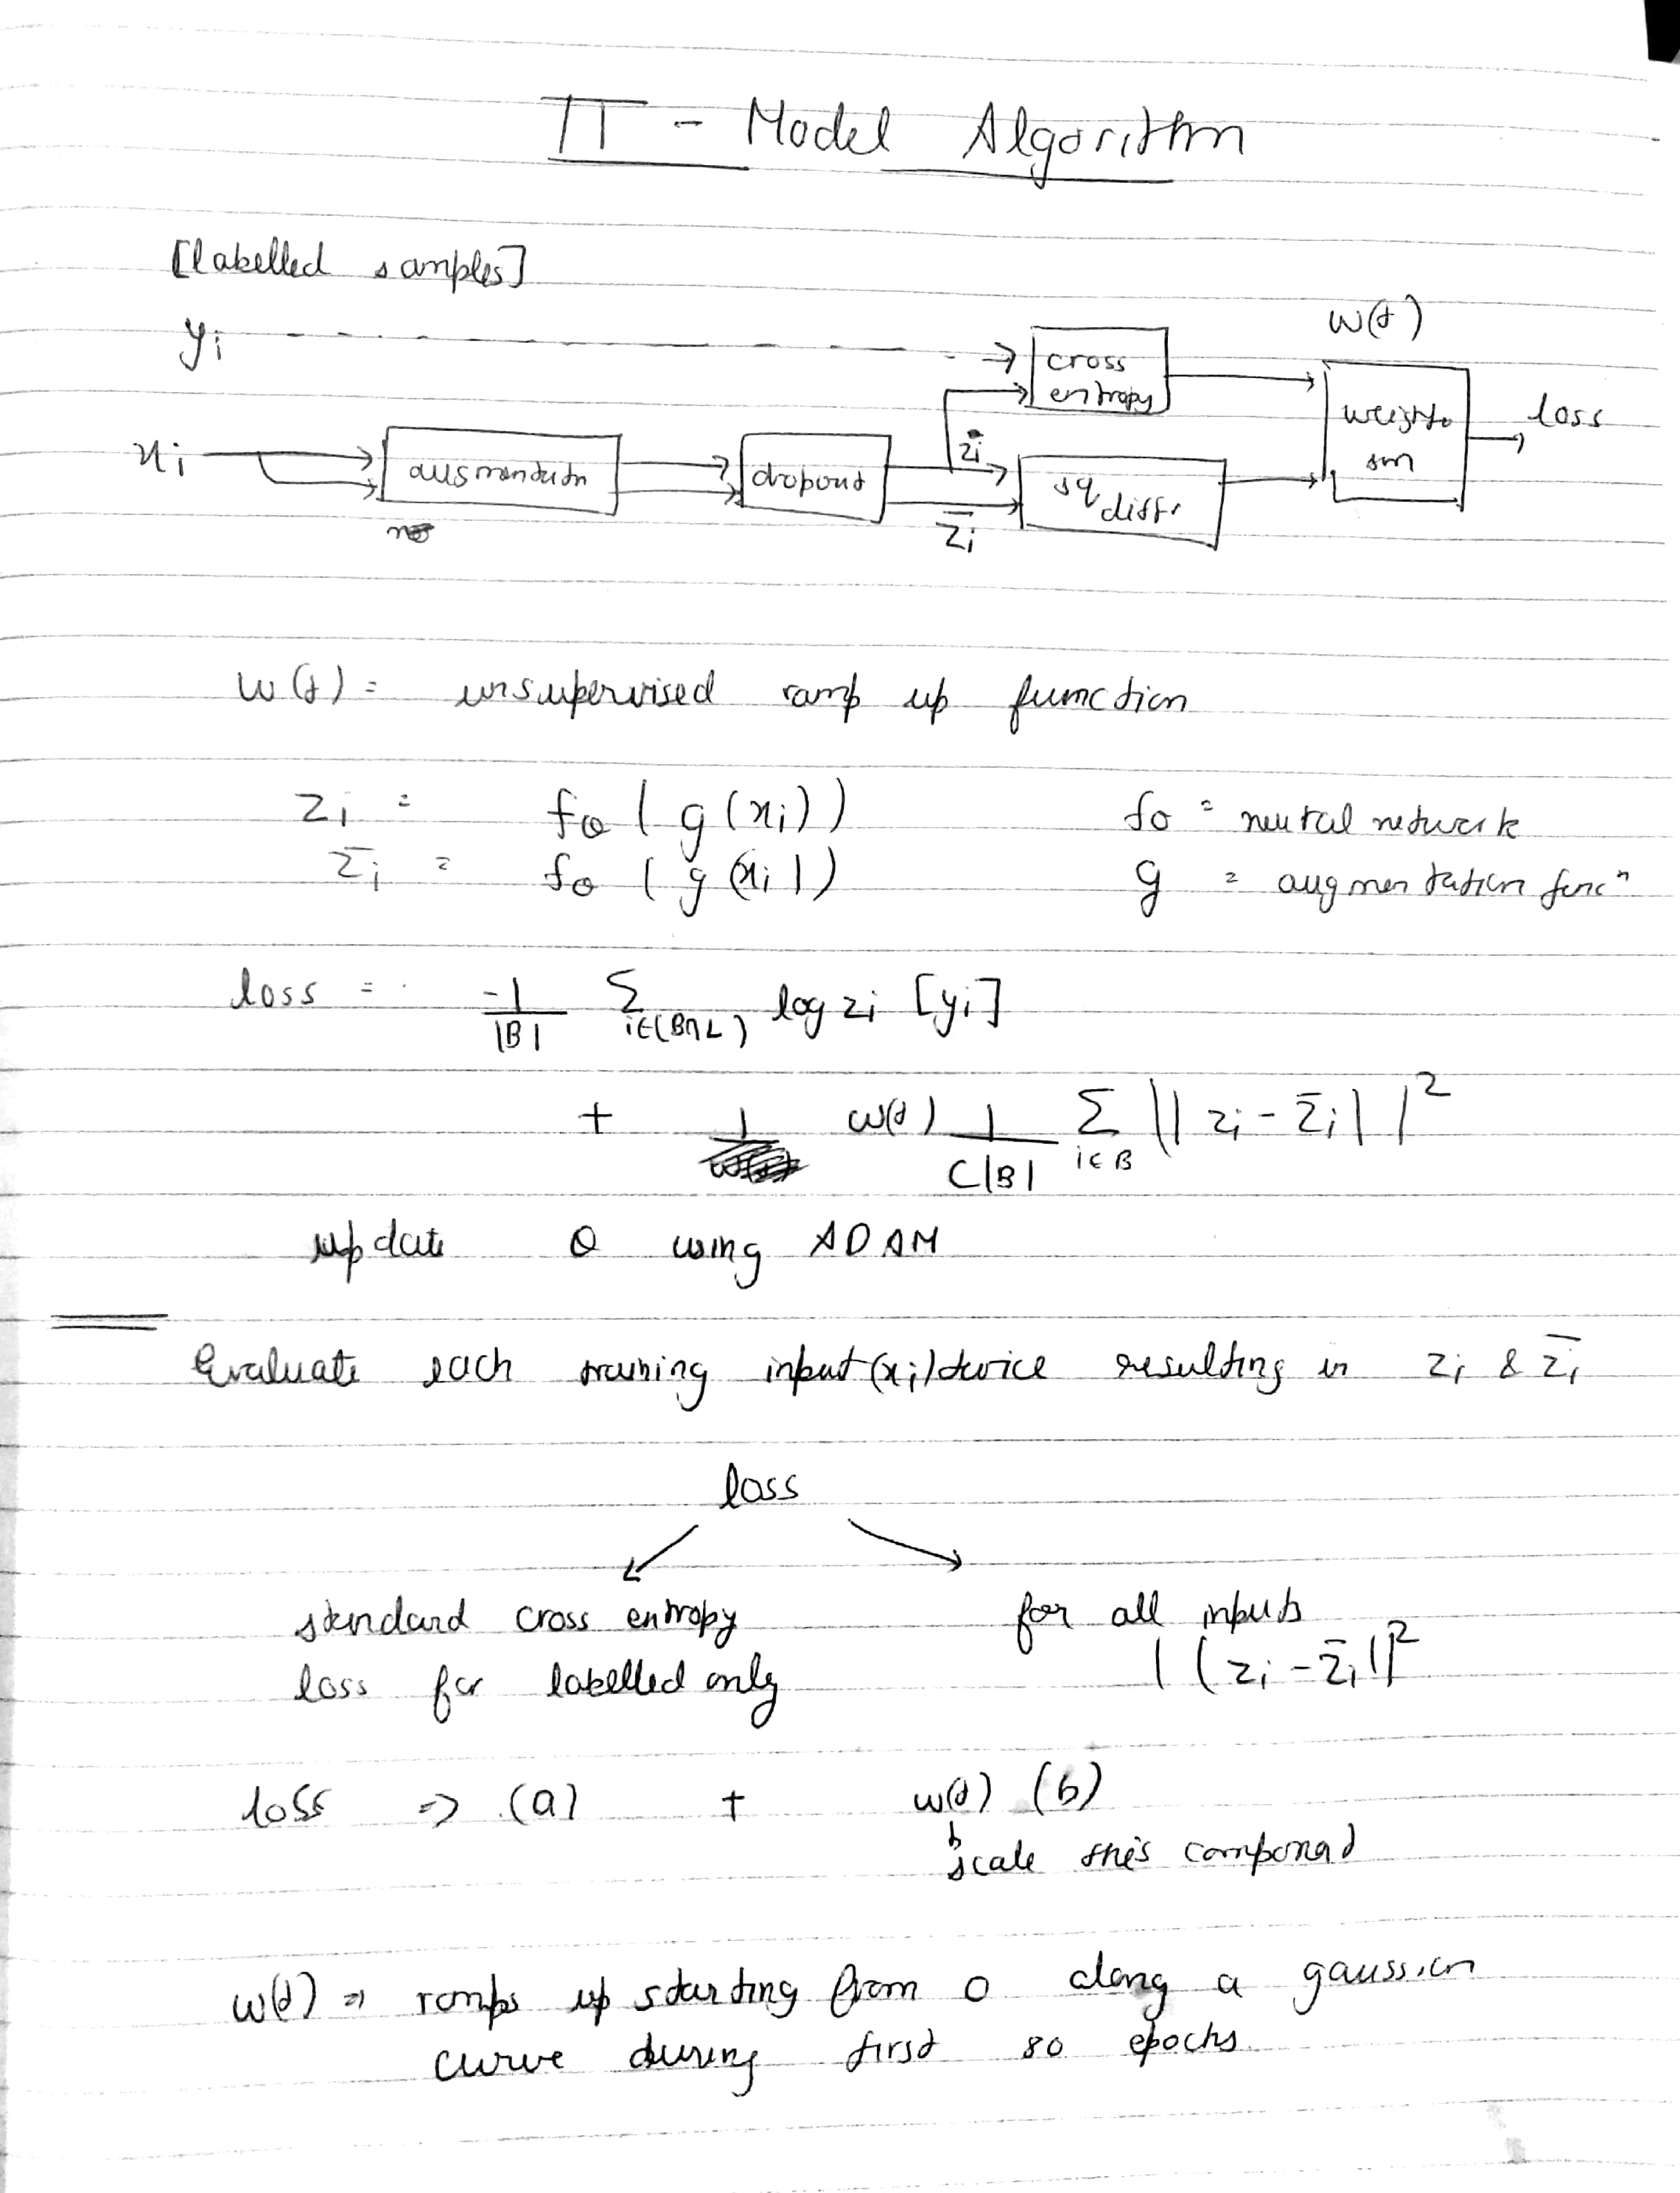 Π - Model Algorithm
[labelled samples]
w(t)
yi
cross
entropy
weighte
sm
loss
xi
augmentation
dropout
zi
sq
diffr
z̄i
w(t) = unsupervised ramp up function
zi = fθ ( g(xi))
fθ = neural network
z̄i = fθ ( g(xi))
g = augmentation funcⁿ
loss = -1/|B| Σ i∈(B∩L) log zi [yi]
+ w(t) 1/C|B| Σ i∈B || zi - z̄i ||²
update θ using ADAM
Evaluate each training input (xi) twice resulting in zi & z̄i
loss
standard cross entropy
loss for labelled only
for all inputs
||zi - z̄i||²
loss => (a) + w(t) (b)
scale this component
w(t) => ramps up starting from 0 along a gaussian
curve during first 80 epochs.